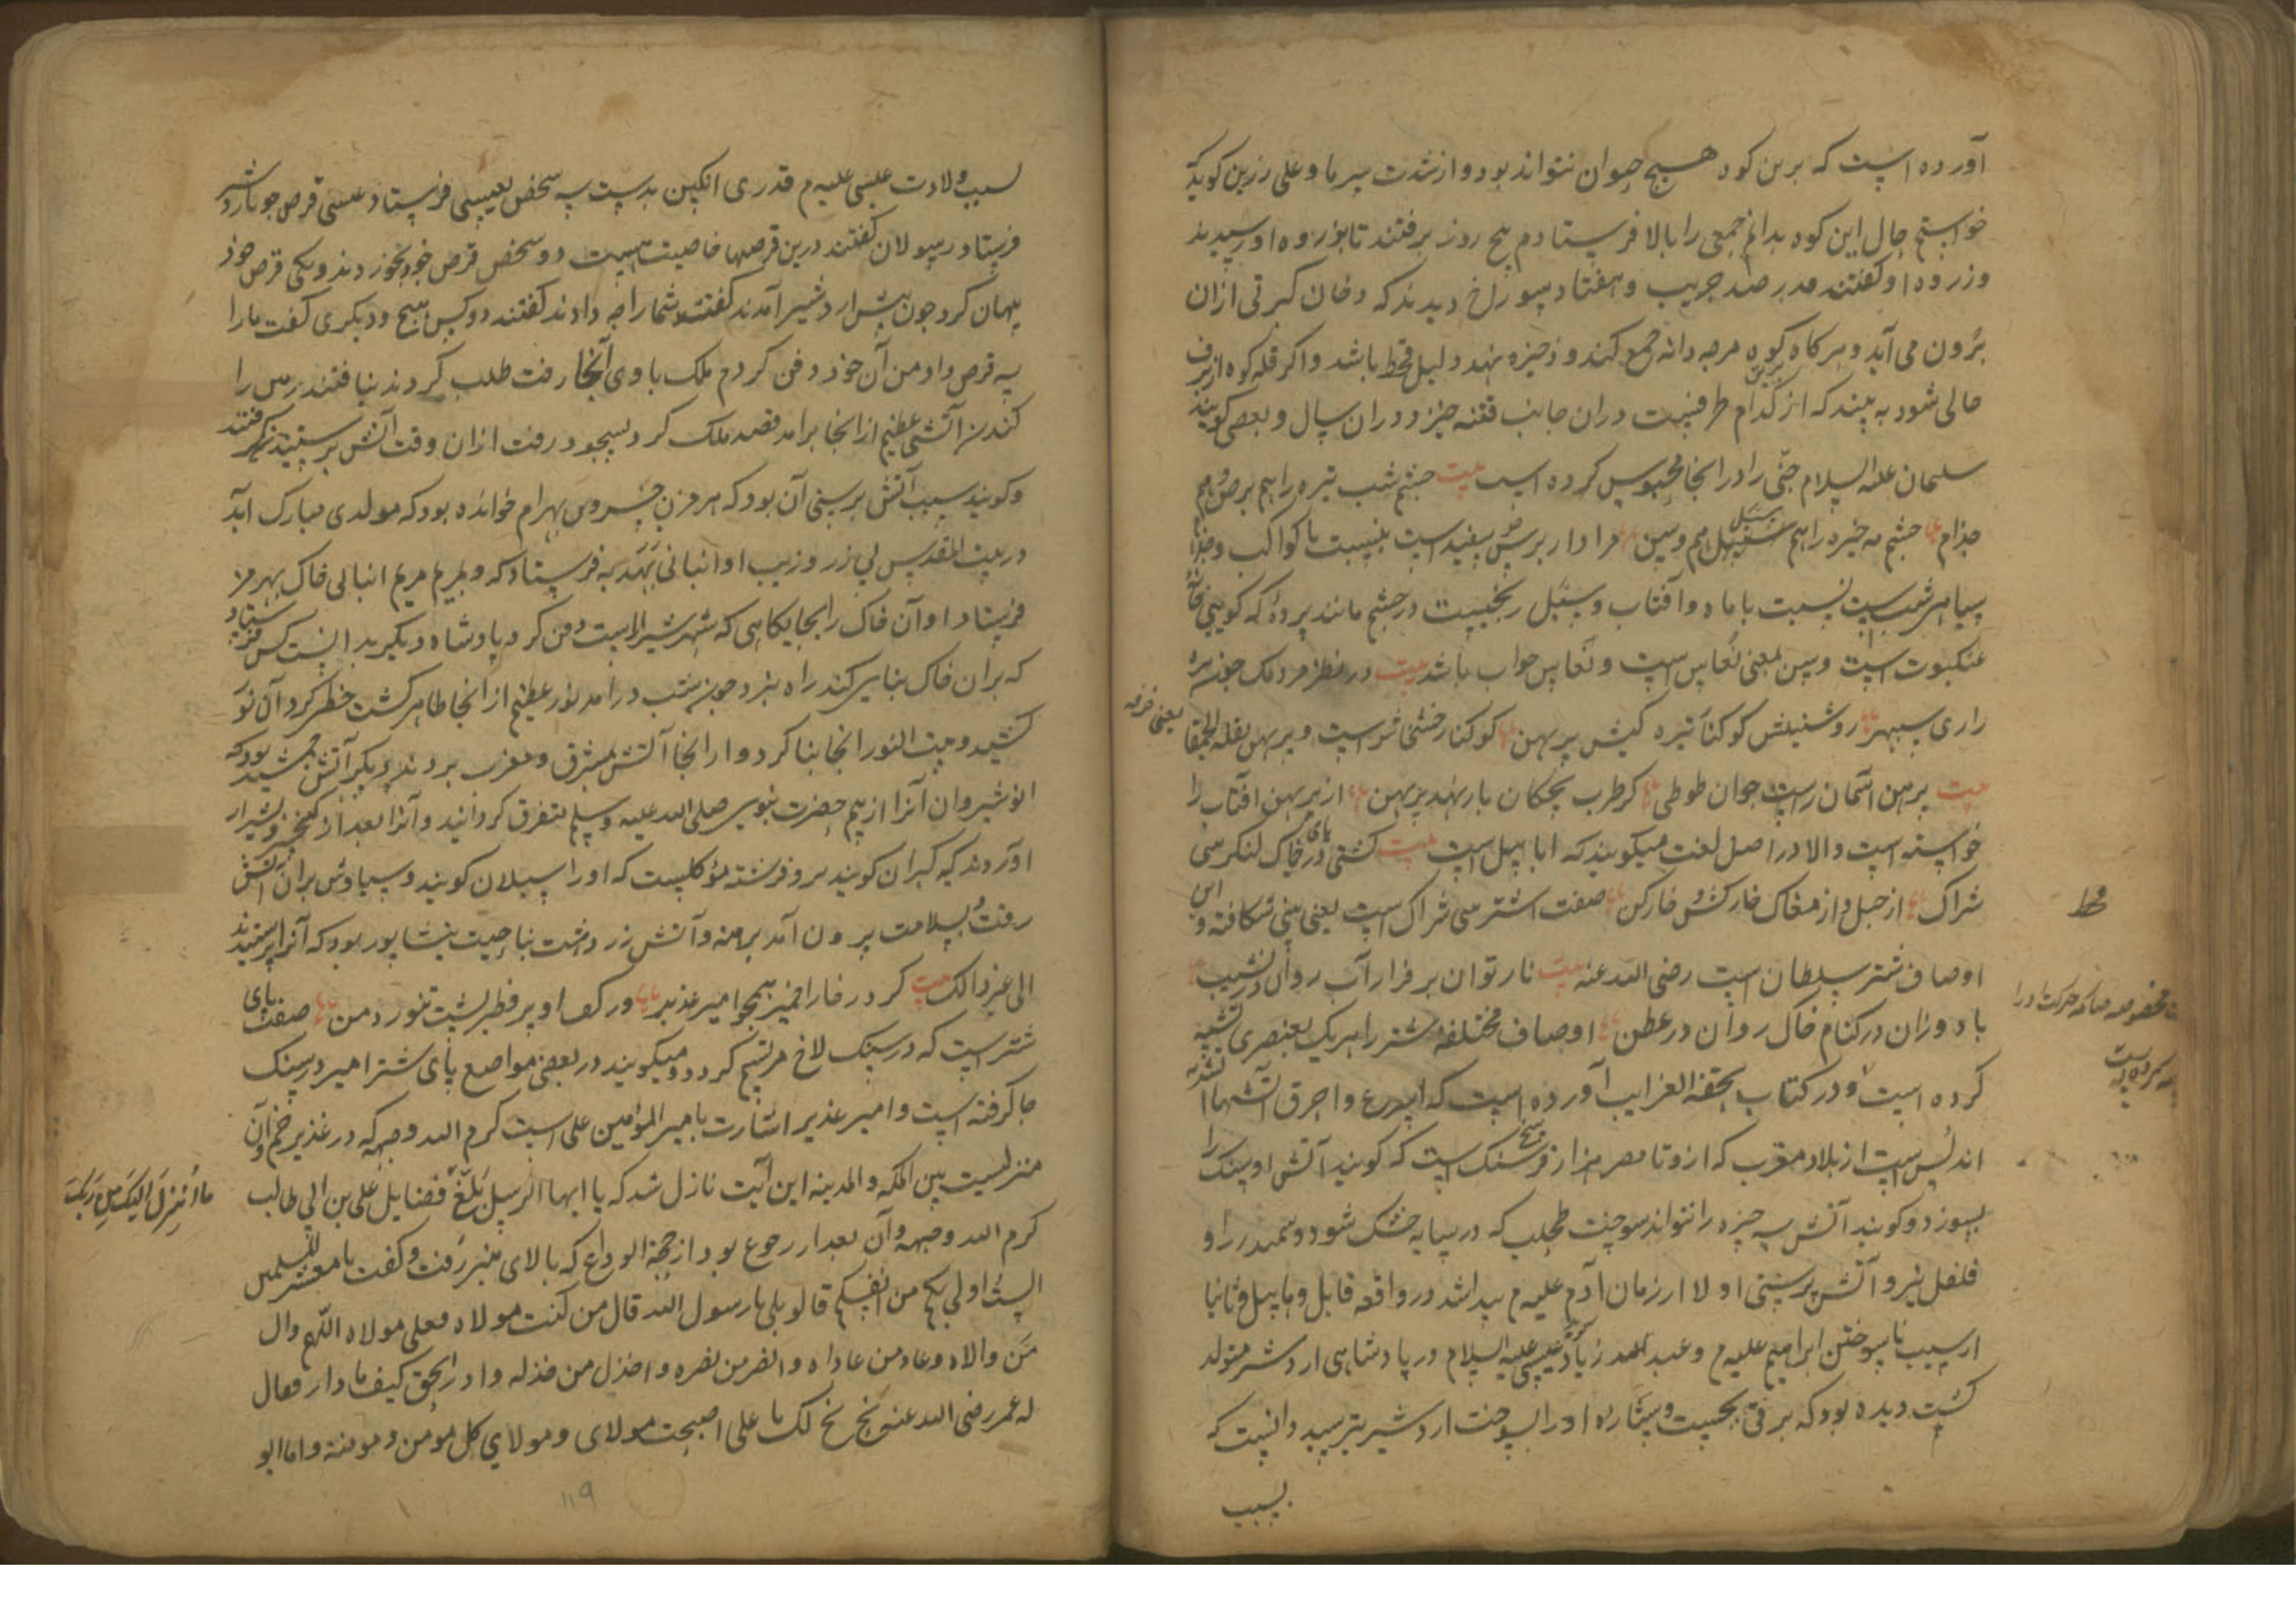 آورده است که برین کوه هیچ حیوان نتواند بود و از شدت سرما و علی رزین کوید که
خواستم حال این کوه بدانم جمعی را بالا فرستادم پنج روز برفتند تا بذروه او رسیدند
وزروه او کفتند قدر صد جریب و هفتاد سوراخ دیدند که دخان کبرتی ازان
برون می آید و هرکاه کوه مرجه دانه جمع کند و ذخیره نهد دلیل قحط باشد و اکر قله کوه از برف
خالی شود به بیند که از کدام طرفیست دران جانب فتنه خیزد دران سال و بعضی کویند
سلیمان علیه السلام جنی را در انجا محبوس کرده است بیت چشم شب تیره را هم برص و هم
جذام چشم مه خیره را هم سبل و هم وسن مراد از برش سفیدیست بنسبت با کواکب و جذام
سیاهی شبست نسبت با ماه و آفتاب و سبل رنجیست در چشم مانند پرده که کویی خانه
عنکبوت است و وسن بمعنی نعاس است و نعاس خواب باشد بیت در نظر مردمک جونه
رای سپهر روشنیش کوکنا تیره کیش پرپهن کوکنار خشخاش است و پرپهن بقلة الحمقا یعنی خرفه
بیت برمن آسمان راست جوان طوطی کز طرب بچکان بار نهد پرپهن از پرپهن آفتاب را
خواسته است والا در اصل لغت میکویند که ابابیل است بیت کشتی در خاک لنکر سی
شراک از جبل و از مغاک خارکش و خارکن صفت اشتر سی شراک است یعنی بینی شکافته و این
اوصاف شتر سلطان است رضی الله عنه بیت نار توان بر فراز آب روان در نشیب
باد وزان در کنام خاک روان در عطن اوصاف مختلفه شتر را هریک بعنصری تشبیه
کرده است و در کتاب تحفة الغرایب آورده است که اسرع و احرق آتشها
اندلس است از بلاد مغرب که ازو تا مصر هزار فرسنک است که کویند آتش او سنک را
بسوزد و کویند آتش سه چیزه را نتواند سوخت طحلب که در سایه خشک شود و سمندر را و
فلفل نیز و آتش پرستی اولا از زمان آدم علیه م پیدا شد در واقعه قابل و هابیل و ثانیا
از سبب ناسوختن ابراهیم علیه م و عیسی علیه السلام در پادشاهی اردشیر متولد
کشت دیده بود که برقی بجست و ستاره او را بسوخت اردشیر بترسید دانست که
بسبب
بسبب ولادت عیسی علیه م قدری انکبین بدست سه شخص بعیسی فرستاد عیسی قرص جو باردشیر
فرستاد رسولان کفتند درین قرصها خاصیت هست دو شخص قرص خود بخوردند و یکی قرص خود
پنهان کرد جون پیش اردشیر آمدند کفت شما را چه دادند کفتند دو کس هیچ و دیکری کفت ما را
سه قرص داد من آن خود دفن کردم ملک با وی آنجا رفت طلب کردند نیافتند زمین را
کندند آتشی عظیم از انجا برآمد قصد ملک کرد بسجود رفت ازان وقت آتش پرستیدن کرفتند
و کویند سبب آتش پرستی آن بود که هرمز بن خسرو بن بهرام خوانده بود که مولدی مبارک آید
در بیت المقدس پی زر و زیب او انبانی بهدیه فرستاد که و مریم انبانی خاک بهرمز
فرستاد او آن خاک را بجایکاهی که شهر شیراز است دفن کرد پادشاه دیکر بدانست کس فرستاد
که بران خاک بنایی کند راه نبرد جون شب درآمد نور عظیم از انجا ظاهر کشت خطی کرد آن نور
کشید و بیت النور انجا بنا کرد و از انجا آتش بمشرق و مغرب بردند و دیکر آتش جمشید بود که
انوشیروان آنرا از بیم حضرت نبوی صلی الله علیه و سلم متفرق کردانید و آنرا بعد از کیخسرو بشیراز
آوردند که کبران کویند برو فرشته مؤکلیست که او را اسیلان کویند و سیاوش بران آتش
رفت بسلامت برون آمد برهنه و آتش زردشت بناحیت نیشابور بود که آنرا پرستیدند
الی غیر ذالک بیت کرد در خارا خمیر همجو امیر غدیر ور کف او پر فطیر پشت تنور دمن صفت پای
شتر است که در سنک لاخ مرتسم کردد و میکویند در بعضی مواضع پای شتر امیر در سنک
جا کرفته است و امیر غدیر اشارت بامیر المؤمنین علی است کرم الله وجهه که در غدیر خم و آن
منزلیست بین المکه و المدینه این آیت نازل شد که یا ایها الرسل بلغ فضایل علی بن ابی طالب
ما انزل الیک من ربک
کرم الله وجهه و آن بعد از رجوع بود از حجة الوداع که بالای منبر رفت و کفت یا معشر المسلمین
الست اولی بکم من انفسکم قالو بلی یا رسول الله قال من کنت مولاه فعلی مولاه اللهم وال
من والاه و عاد من عاداه و انصر من نصره و اخذل من خذله و ادر الحق کیف ما دار فعال
له عمر رضی الله عنه بخ بخ لک یا علی اصبحت مولای و مولای کل مؤمن و مومنة و اما ابو
۱۱۹